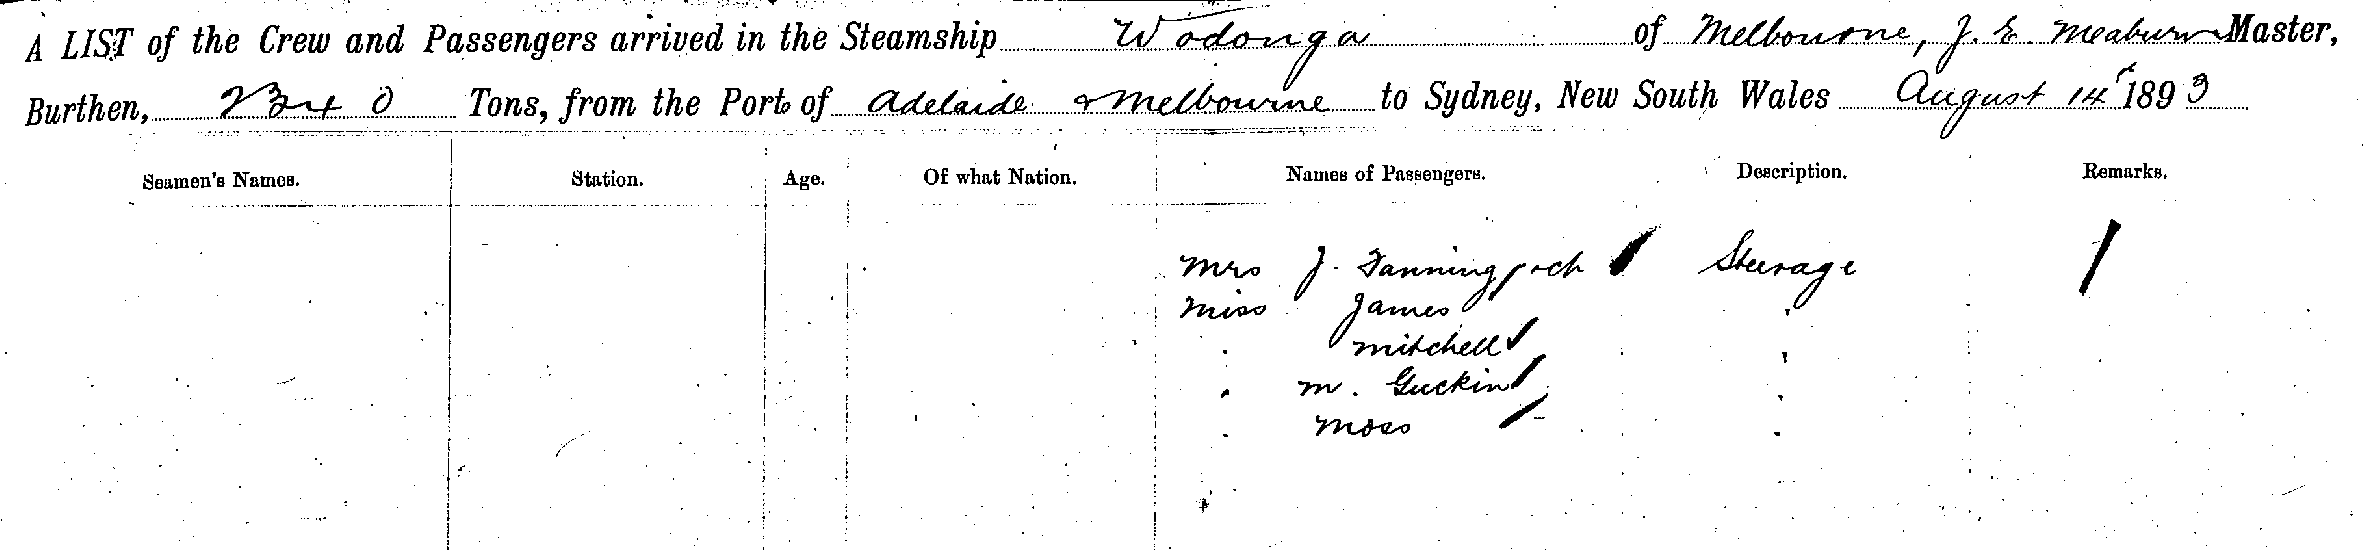 A LIST of the Crew and Passengers arrived in the Steamship Wodonga of Melbourne, J. E. Meaburn Master,
Burthen, 2340 Tons, from the Port of Adelaide & Melbourne to Sydney, New South Wales August 14 1893
Seamen's Names. Station. Age. Of what Nation. Names of Passengers. Description. Remarks.
Mrs J. Fanning & ch Steerage
Miss James "
" Mitchell "
" M. Guckin "
" Moss "